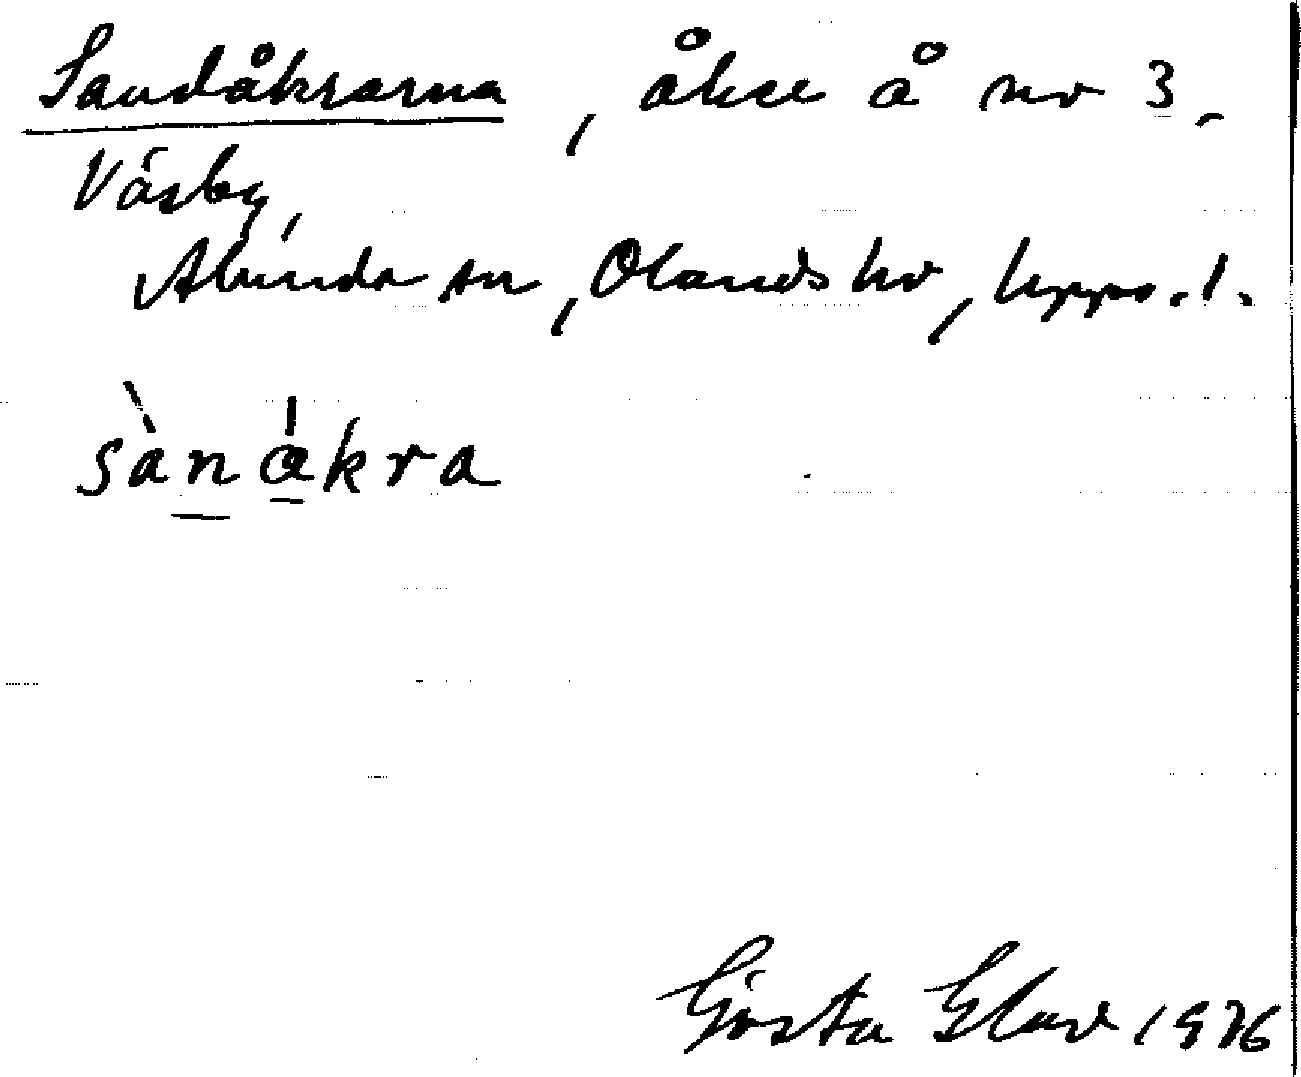 Sandåkrarna, åker å nr 3,
Väsby,
Alunda sn, Olands hd, Upps. l.
sànákra
Gösta Elard 1976